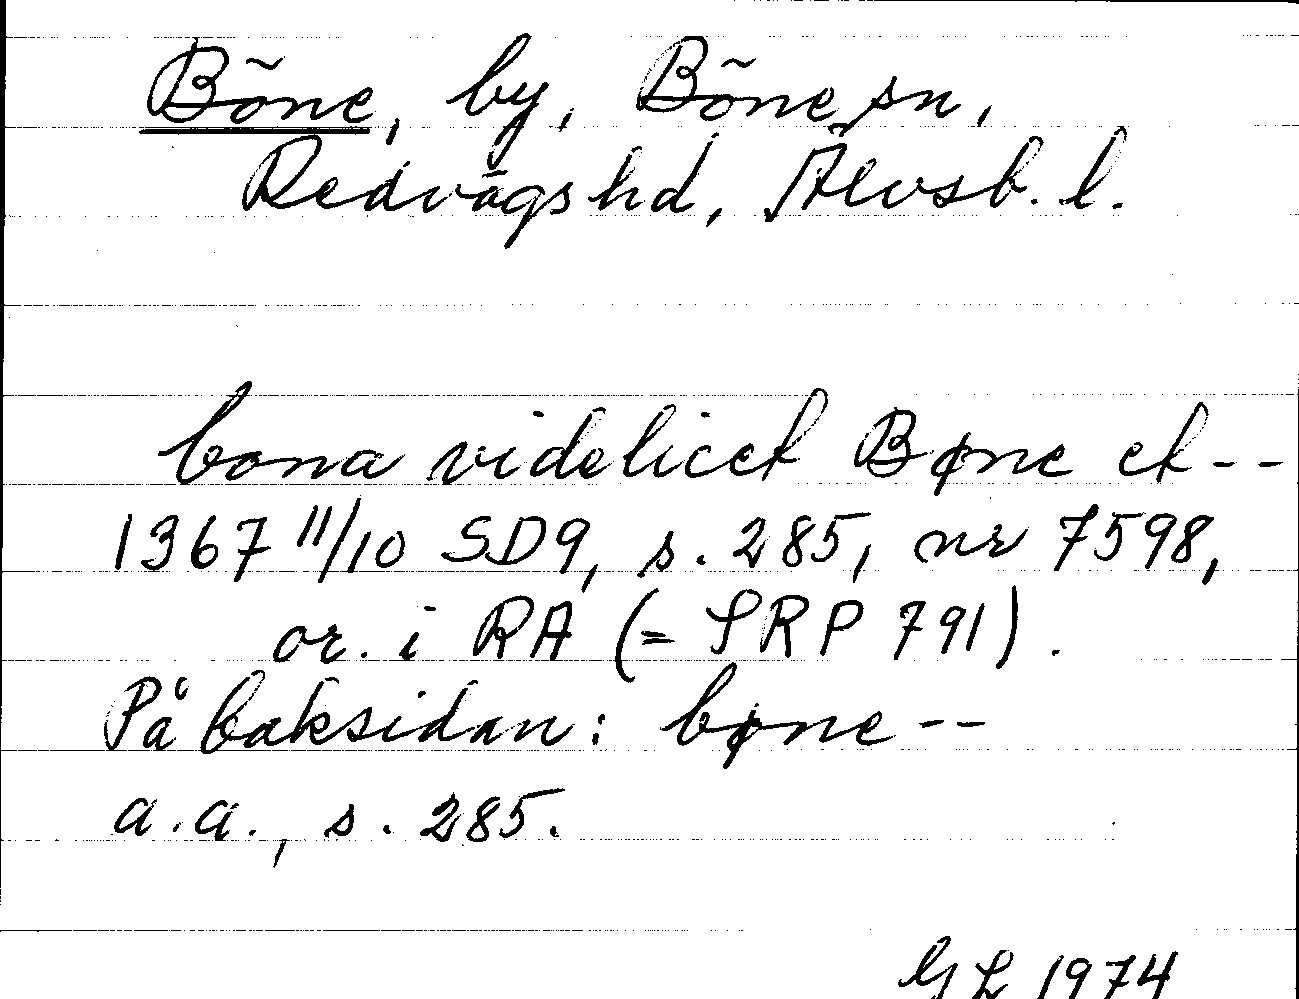 Böne, by, Böne sn,
Redvägs hd, Älvsb. l.
bona videlicet Bøne et --
1367 11/10 SD9, s. 285, nr 7598,
or. i RA (= SRP 791).
På baksidan: bøne --
a.a., s. 285.
GL 1974